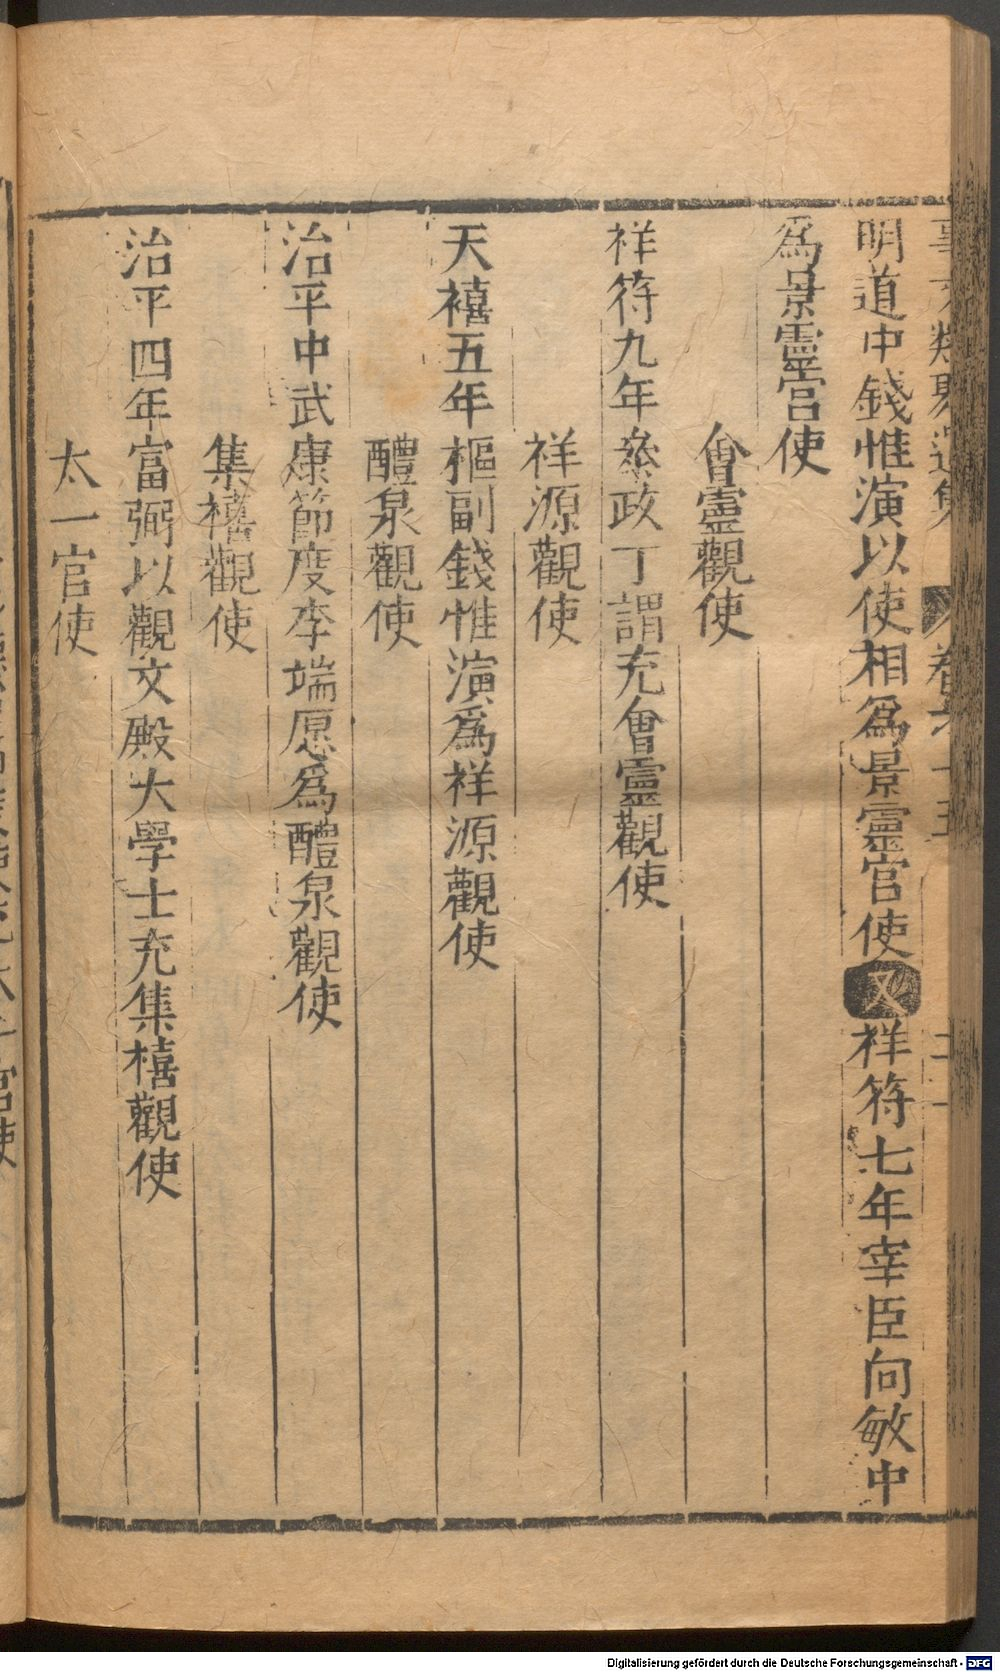 事文類聚遺集 卷之十五 二一
明道中錢惟演以使相爲景靈官使又祥符七年宰臣向敏中
爲景靈宮使
會靈觀使
祥符九年叅政丁謂充會靈觀使
祥源觀使
天禧五年樞副錢惟演爲祥源觀使
醴泉觀使
治平中武康節度李端愿爲醴泉觀使
集禧觀使
治平四年富弼以觀文殿大學士充集禧觀使
太一官使
Digitalisierung gefördert durch die Deutsche Forschungsgemeinschaft - DFG